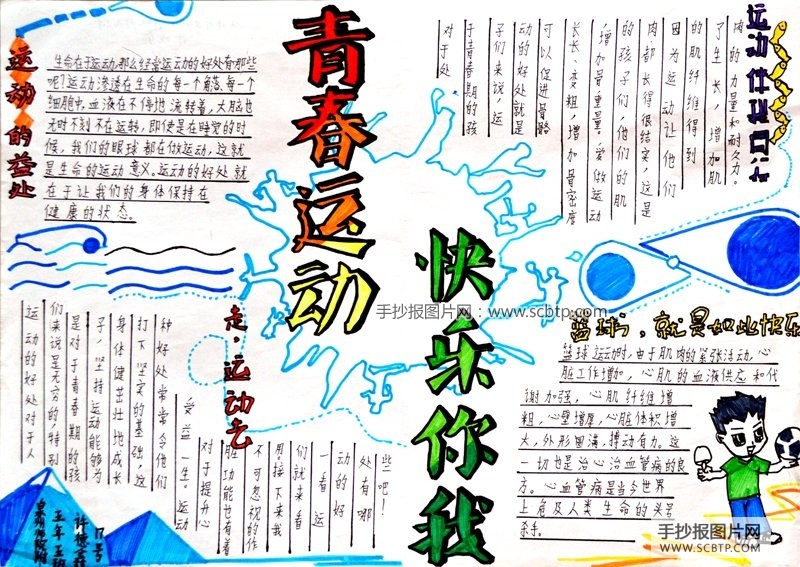 青春运动
快乐你我
运动的益处
生命在于运动,那么经常运动的好处有哪些
呢?运动渗透在生命的每一个角落,每一个
细胞中,血液在不停地流转着,大脑也
无时不刻不在运转,即使是在睡觉的时
候,我们的眼球都在做运动,这就
是生命的运动意义。运动的好处就
在于让我们的身体保持在
健康的状态。
对于处
于青春期的孩
子们来说,运
动的好处就是
可以促进骨骼
长长、变粗,增加骨密度
,增加骨重量,爱做运动
的孩子们,他们的肌
肉都长得很结实,这是
因为运动让他们
的肌纤维得到
了生长,增加肌
肉的力量和耐久力。
走,运动去
运动的好处对于人
们来说是无穷的,特别
是对于青春期的孩
子,坚持运动能够为
身体健壮地成长
打下坚实的基础,这
种好处常常令他们
受益一生。运动
对于提升心
脏功能也有着
不可忽视的作
用,接下来我
们就来看
一看运
动的好
处有哪
些吧!
篮球,就是如此快乐
篮球运动时,由于肌肉的紧张活动,心
脏工作增加,心肌的血液供应和代
谢加强,心肌纤维增
粗,心壁增厚,心脏体积增
大,外形圆满,搏动有力。这
一切也是治心治血管病的良
方。心血管病是当今世界
上危及人类生命的头号
杀手。
五年五班
17号
手抄报图片网:www.scbtp.com
手抄报图片网
WWW.SCBTP.COM